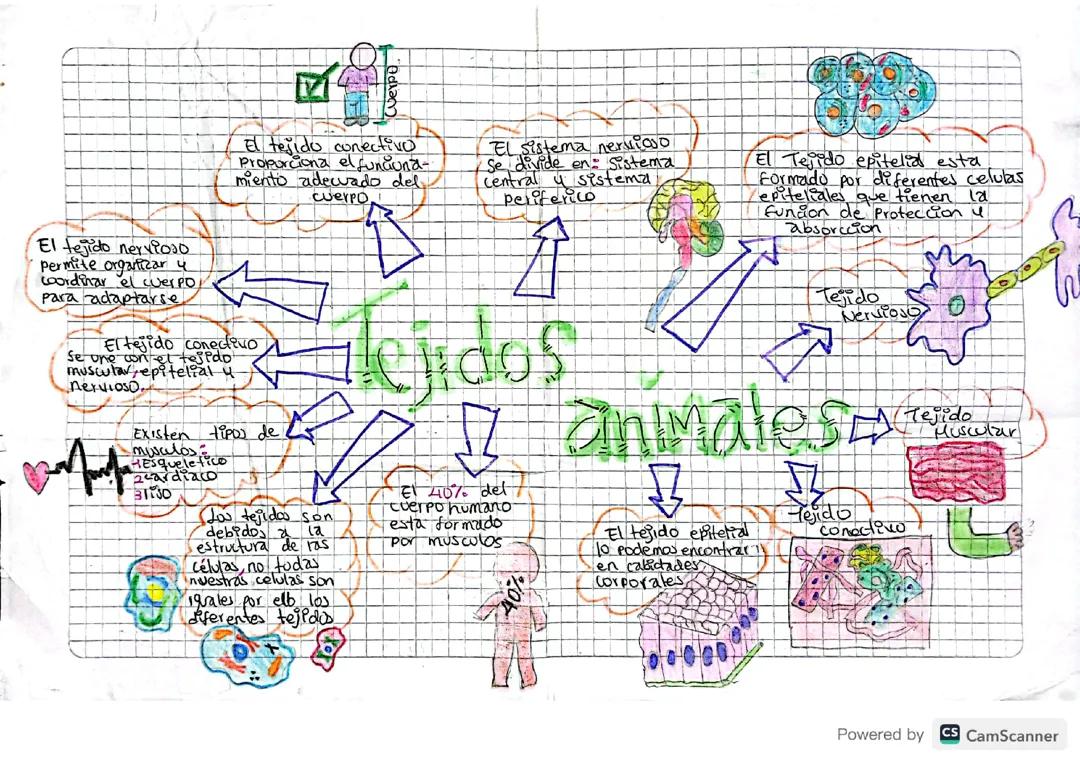 cuerpo
El tejido conectivo
proporciona el funciona-
miento adecuado del
cuerpo
El sistema nervioso
se divide en: sistema
central y sistema
periferico
El Tejido epitelial esta
formado por diferentes celulas
epiteliales que tienen la
funcion de proteccion y
absorccion
El tejido nervioso
permite organizar y
coordinar el cuerpo
para adaptarse
Tejido
Nervioso
El tejido conectivo
se une con el tejido
muscular, epitelial y
nervioso.
Tejidos
animales
Existen tipos de
musculos:
1 Esqueletico
2 cardiaco
3 liso
Tejido
Muscular
Los tejidos son
debidos a la
estructura de las
células, no todas
nuestras celulas son
iguales por ello los
diferentes tejidos
El 40% del
cuerpo humano
esta formado
por musculos
40%
El tejido epitelial
lo podemos encontrar
en cabidades
corporales
Tejido
conectivo
Powered by CS CamScanner